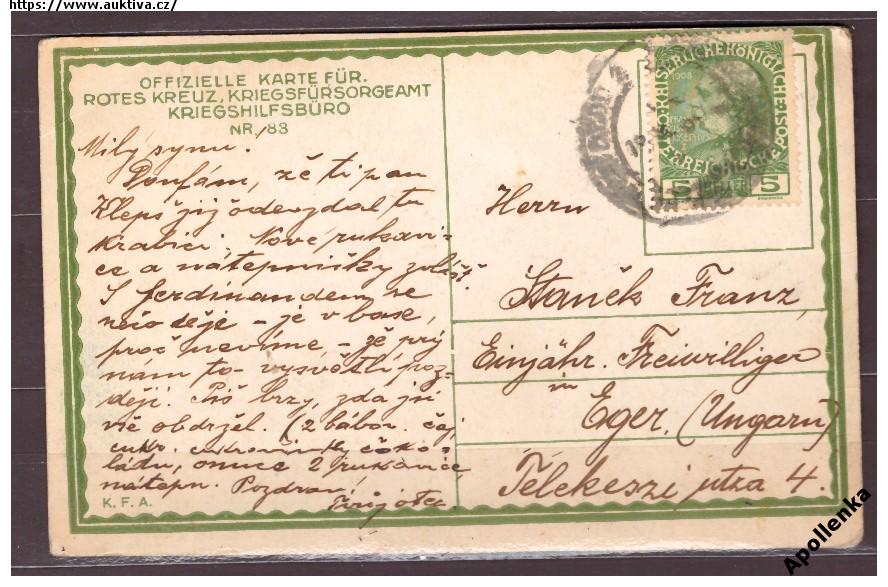 https://www.auktiva.cz/
OFFIZIELLE KARTE FÜR
ROTES KREUZ, KRIEGSFÜRSORGEAMT
KRIEGSHILFSBÜRO
NR. 188
Milý synu!
Doufám, že ti pan
Klepš již odevzdal tu
krabici. Nové rukavi-
ce a nátepničky zvlášť.
S Ferdinandem se
něco děje – je v base,
proč nevíme – že prý
nám to vysvětlí poz-
ději. Piš brzy, zda jsi
vše obdržel. (2 bábov. čaj,
cukr. cukrovinky čoko-
ládu, onuce 2 rukavice
nátepn. Pozdrav!
Tvůj otec
K. F. A.
K.K. KAISERLICHEKÖNIGLICHE
ÖSTERREICHISCHE
1908
5 5
Herrn
Staněk Franz
Einjähr. Freiwilliger
in
Eger, (Ungarn)
Télekeszi utza 4.
Apollenka